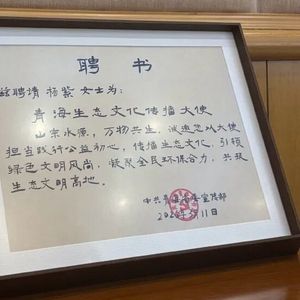 聘书
兹聘请 杨紫 女士为:
青海生态文化传播大使
山宗水源,万物共生,诚邀您以大使
担当践行公益初心,传播生态文化,引领
绿色文明风尚,凝聚全民环保合力,共筑
生态文明高地。
中共青海省委宣传部
11日